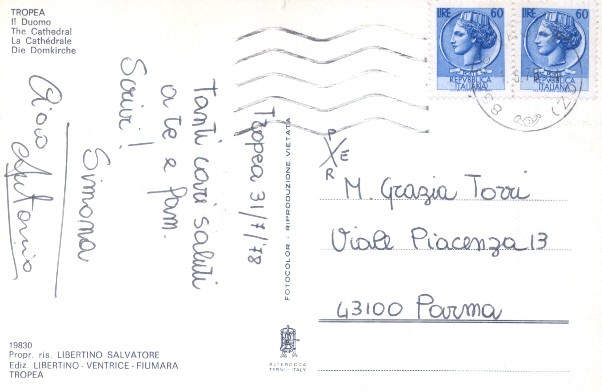 TROPEA
Il Duomo
The Cathedral
La Cathédrale
Die Domkirche
Tropea 31/7/'78
Tanti cari saluti
a te e fam.
Scrivi!
Simona
Ciao
Antonio
19830
Propr. ris. LIBERTINO SALVATORE
Ediz. LIBERTINO - VENTRICE - FIUMARA
TROPEA
FOTOCOLOR - RIPRODUZIONE VIETATA
ALTEROCCA
TERNI - ITALY
LIRE 60
REPVBBLICA
ITALIANA
LIRE 60
REPVBBLICA
ITALIANA
PER
M. Grazia Torri
Viale Piacenza 13
43100 Parma